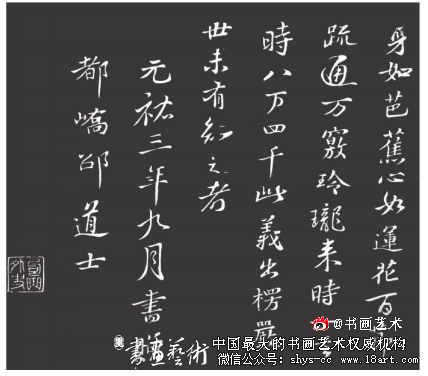 身如芭蕉心如蓮花百
疏通万竅玲瓏来時一
時八万四千此義出楞嚴
世未有知之者
元祐三年九月書
都嶠邵道士
@书画艺术
書畫藝術
中国最大的书画艺术权威机构
微信公众号：shys-cc www.18art.com